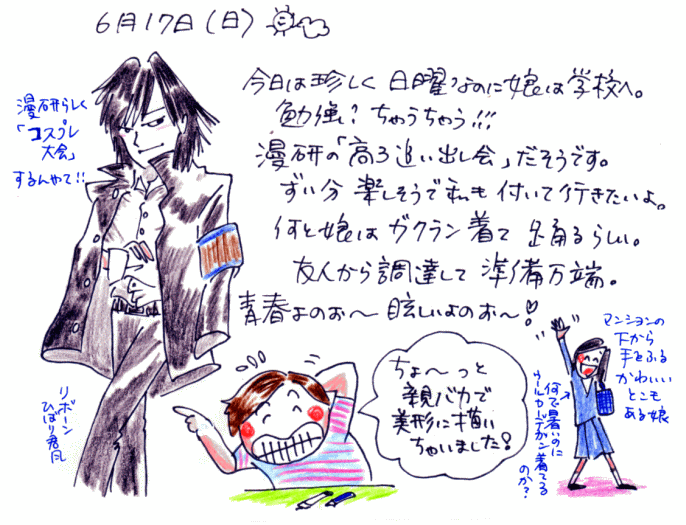 6月17日(日)
今日は珍しく日曜なのに娘は学校へ。
勉強?ちゃうちゃう!!!
漫研の「高3追い出し会」だそうです。
ずい分楽しそうで私も付いて行きたいよ。
何と娘はガクラン着て踊るらしい。
友人から調達して準備万端。
青春よのお〜眩しいよのお〜♡
漫研らしく
「コスプレ
大会」
するんやて!!
リボーン
ひばり君風
ちょ〜っと
親バカで
美形に描い
ちゃいました!
マンションの
下から
手をふる
かわいい
とこも
ある娘
何で暑いのに
ウールカーデガン着てる
のか?